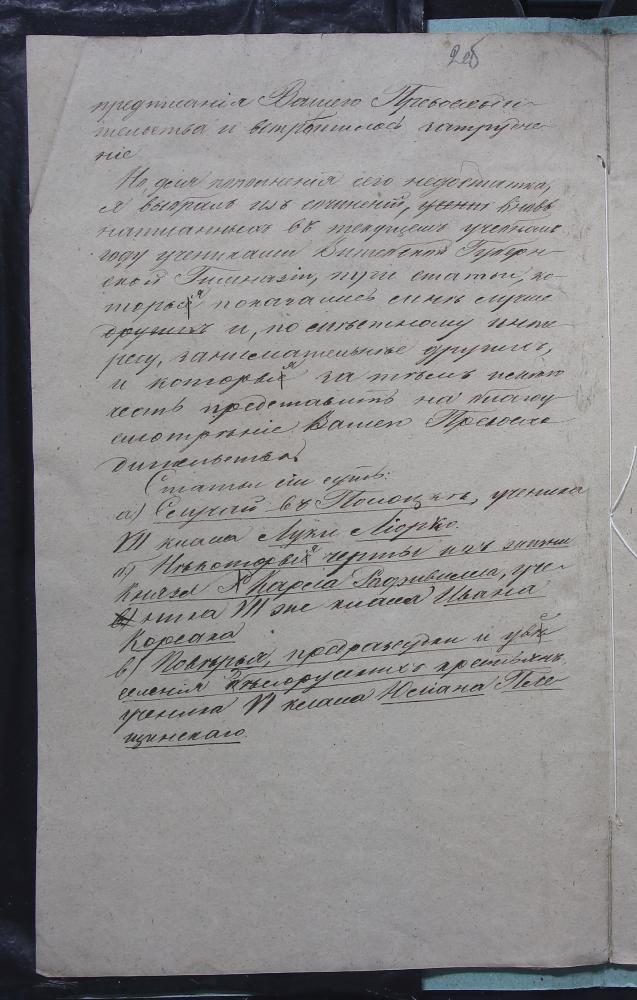 2об
предписанія Вашего Превосходи-
тельства и встрѣтилось затрудне-
ніе.
Но для пополненія сего недостатка,
я выбралъ изъ сочиненій, вновь
написанныхъ въ текущемъ учебномъ
году учениками Витебской Губерн-
ской Гимназіи, три статьи, ко-
торыя показались мнѣ лучше
другихъ и, по мѣстному инте-
ресу, занимательнѣе другихъ,
и которыя за тѣмъ имѣю
честь представить на благоу-
смотрѣніе Вашего Превосхо-
дительства.
Статьи сіи суть:
а) Случай въ Полоцкѣ, ученика
VII класса Луки Ліорко.
б) Нѣкоторыя черты изъ жизни
Князя Карла Радзивилла, уче-
ника VII же класса Ивана
Корсака
в) Повѣрья, предразсудки и увѣ-
селенія Бѣлорусскихъ крестьянъ,
ученика VI класса Юліана Пле-
щинскаго.